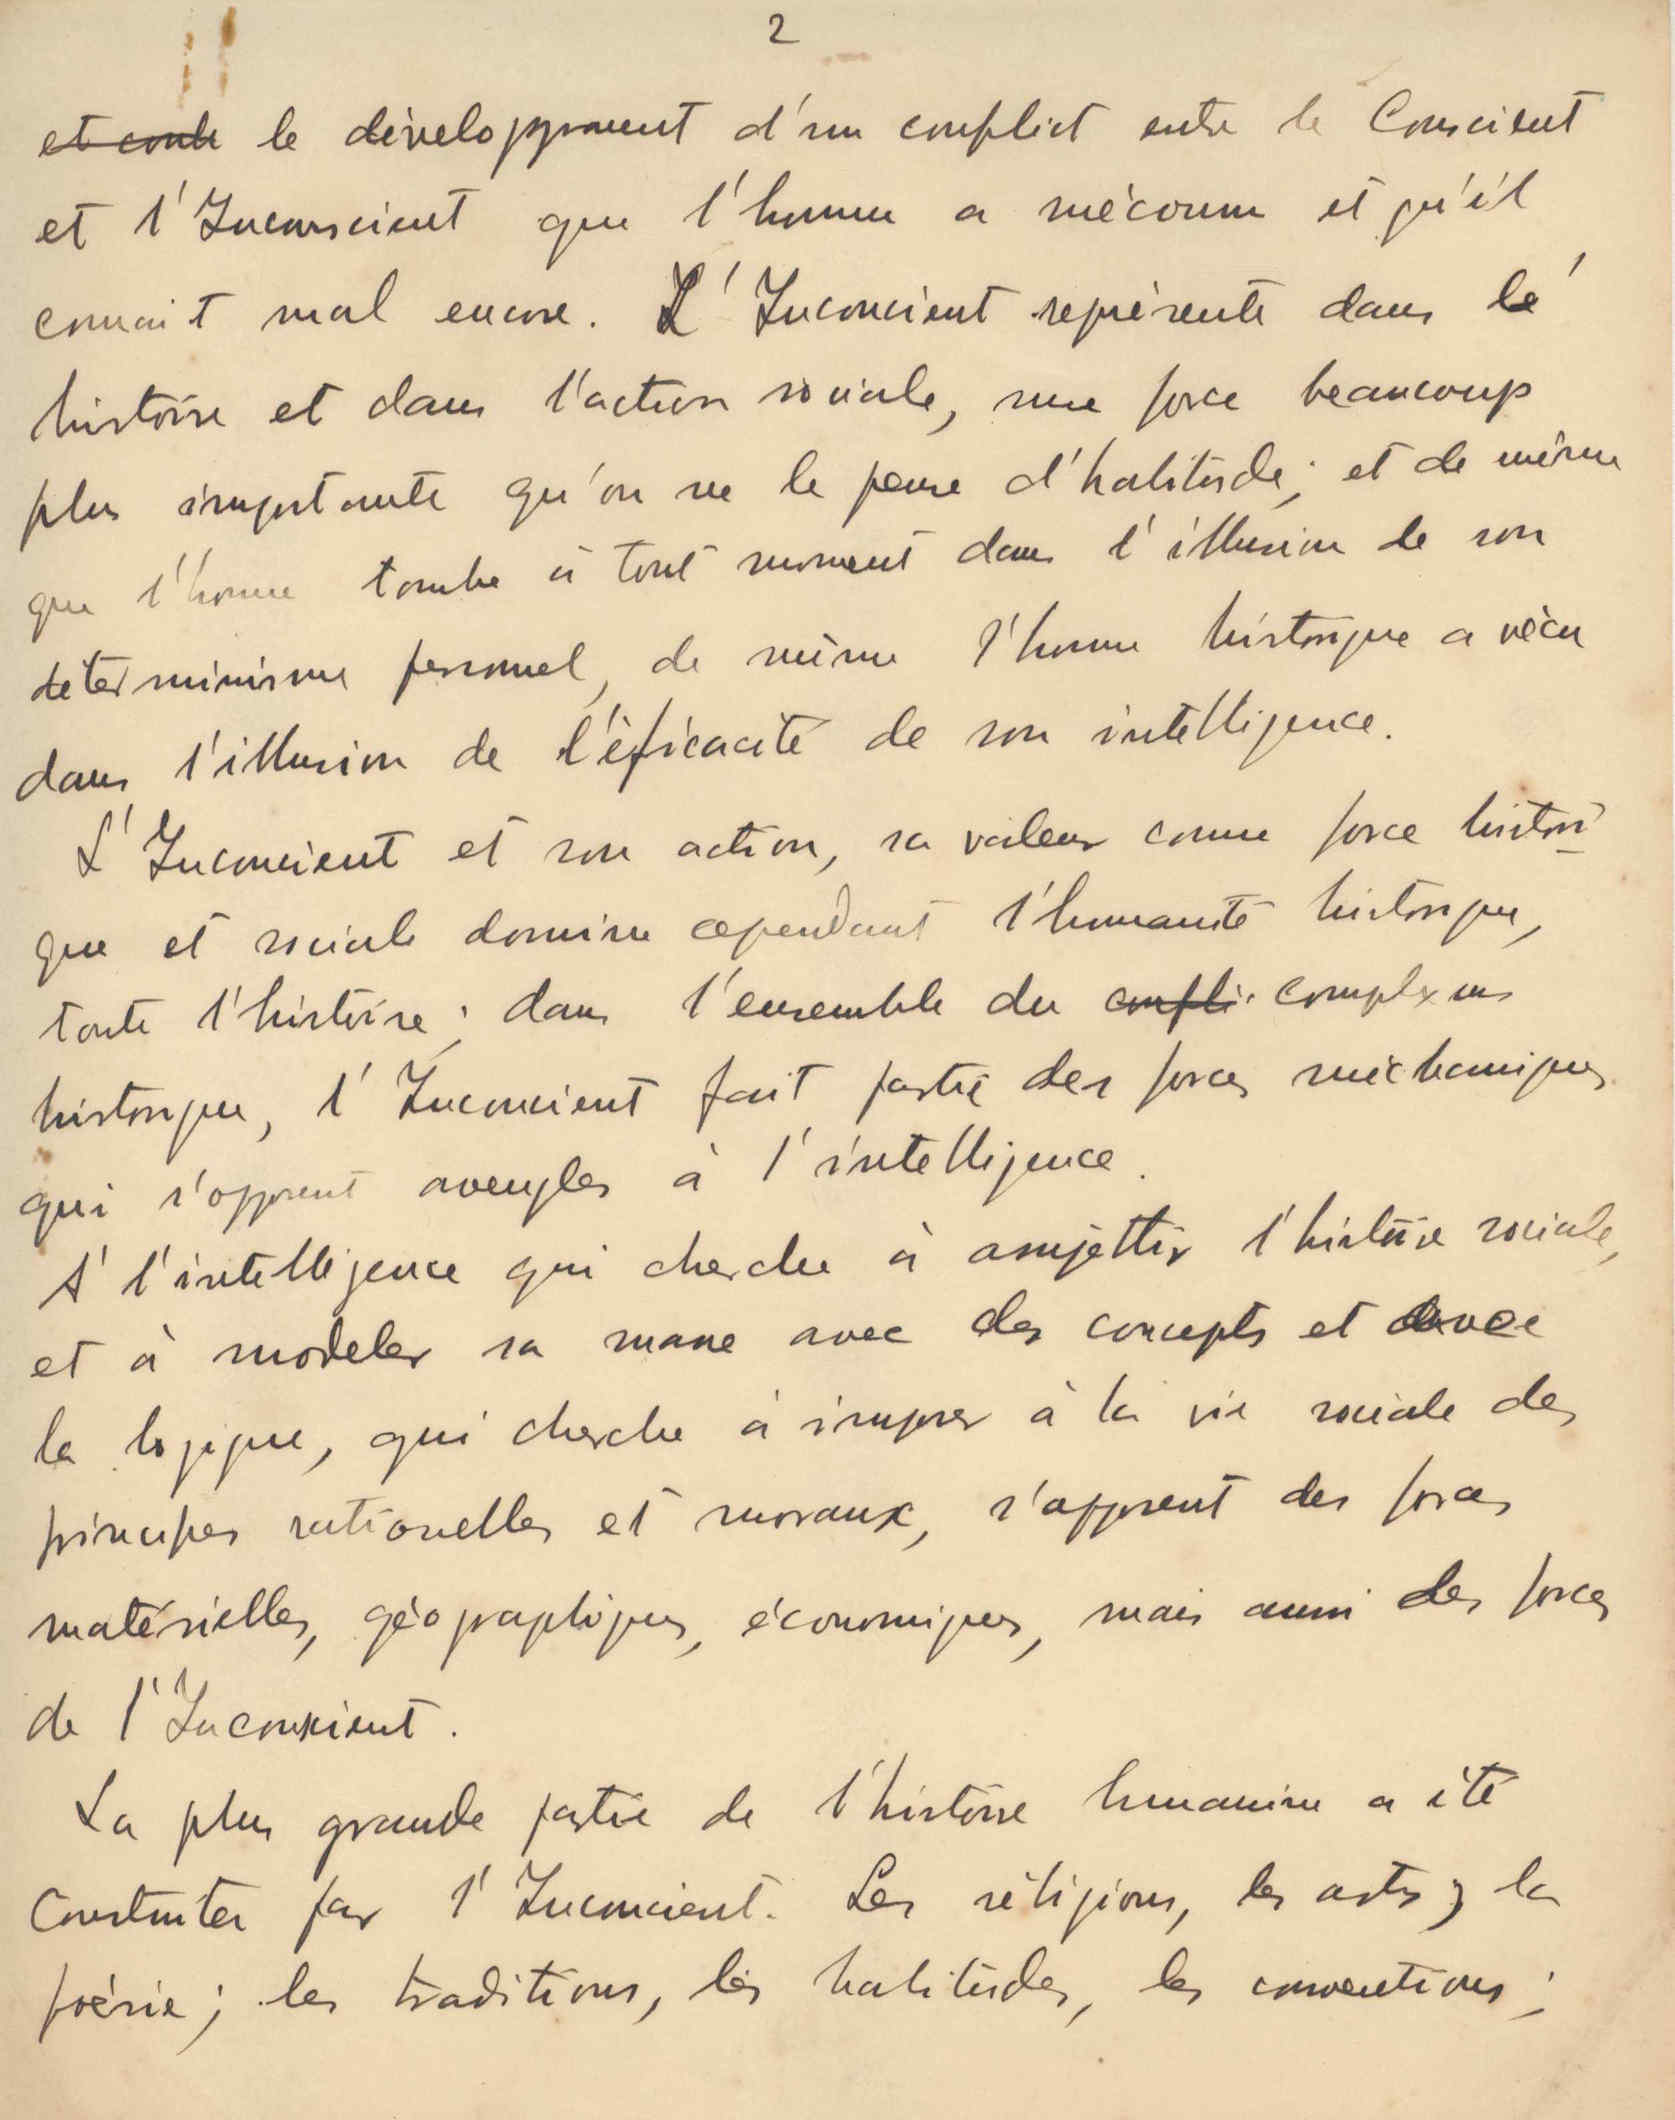 2
et conte le développment d'un conflict entre le Conscient
et l'Inconscient que l'homme a méconnu et qu'il
connait mal encore. L'Inconcient représente dans le'
histoire et dans l'action sociale, une force beaucoup
plus importante qu'on ne le pense d'habitude; et de même
que l'homme tombe à tout moment dans l'illusion de son
déterminisme personnel, de même l'homme historique a vècu
dans l'illusion de l'éficacité de son intelligence.
L'Inconcient et son action, sa valeur comme force histori
que et sociale domine cependant l'humanité historique,
toute l'histoire; dans l'ensemble du confli complexus
historique, l'Inconcient fait partie des forces méchaniques
qui s'opposent aveugles à l'intelligence.
A l'intelligence qui cherche à assujettir l'histoire sociale,
et à modeler sa masse avec des concepts et avec
la logique, qui cherche à imposer à la vie sociale des
principes rationelles et moraux, s'opposent des forces
matérielles, géographiques, économiques, mais aussi des forces
de l'Inconscient.
La plus grande partie de l'histoire humaine a été
construites par l'Inconcient. Les réligions, les arts; la
poésie; les traditions, les habitudes, les conventions;